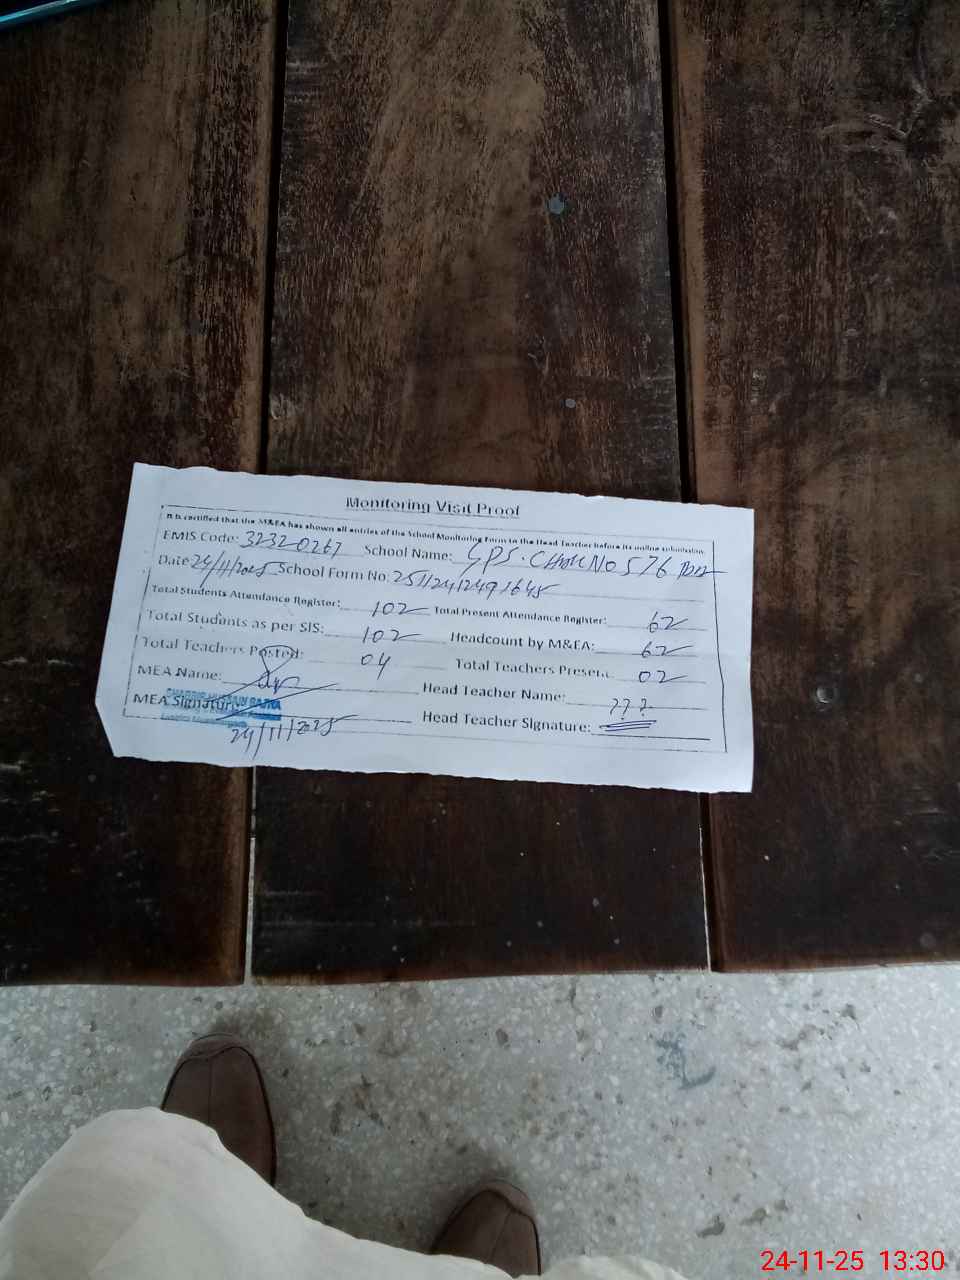 Monitoring Visit Proof
It is certified that the M&EA has shown all entries of the School Monitoring Form to the Head Teacher before its online submission.
EMIS Code: 32320267 School Name: GPS. CHAK NO 576 TDA
Date 24/11/2025 School Form No: 25112412491645
Total Students Attendance Register: 102 Total Present Attendance Register: 62
Total Students as per SIS: 102 Headcount by M&EA: 62
Total Teachers Posted: 04 Total Teachers Present 02
MEA Name: Head Teacher Name: ? ? ?
MEA Signature Head Teacher Signature:
24/11/2025
24-11-25 13:30